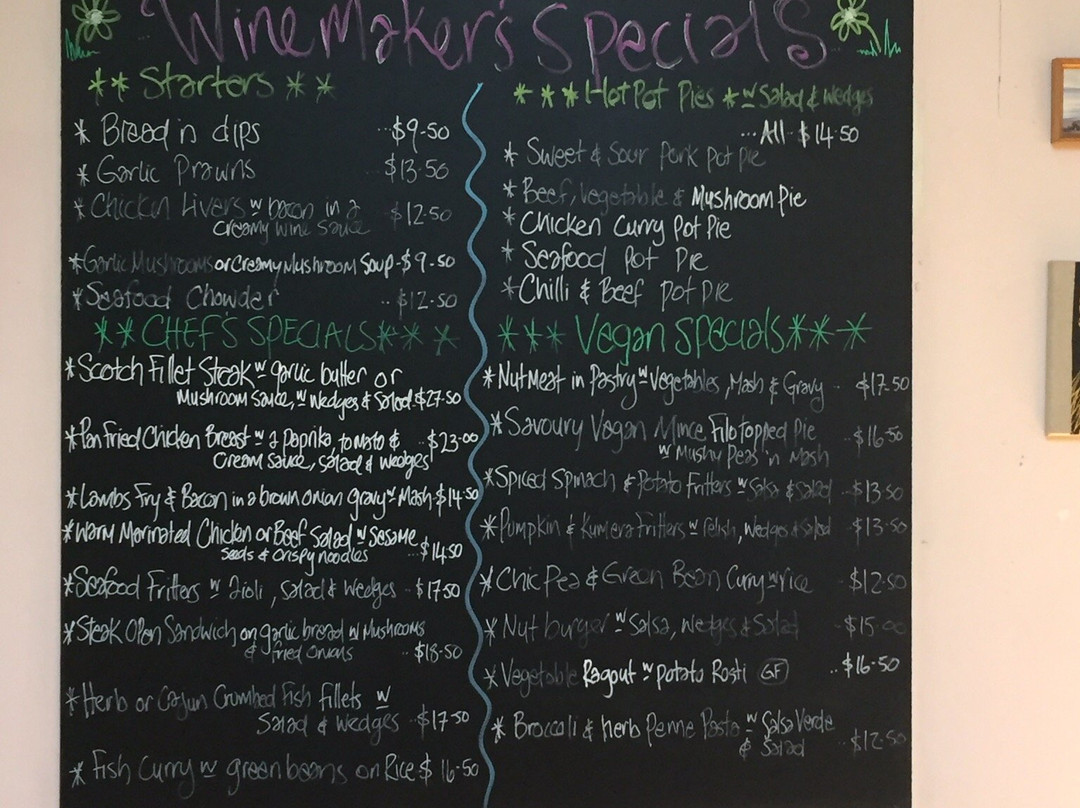 WineMaker's Specials
** Starters **
* Bread n dips ...$9-50
* Garlic Prawns ...$13-50
* Chicken Livers w bacon in a
creamy wine sauce $12-50
*Garlic Mushrooms or Creamy Mushroom Soup-$9-50
*Seafood Chowder .. $12-50
** CHEF'S SPECIALS*** *
*Scotch Fillet Steak w garlic butter or
Mushroom Sauce, w Wedges & Salad.$27-50
*Pan Fried Chicken Breast w a Paprika, tomato & ..$23-00
Cream Sauce, Salad & Wedges
*Lambs Fry & Bacon in a brown onion gravy w Mash-$14-50
*Warm Marinated Chicken or Beef Salad w Sesame
Seeds & Crispy noodles ...$14.50
*Seafood Fritters w aioli, Salad & Wedges -- $17-50
*Steak Open Sandwich on garlic bread w Mushrooms
& fried onions ..$18-50
*Herb or Cajun Crumbed Fish fillets w
Salad & Wedges ..$17-50
* Fish Curry w green beans on Rice $16-50
*** Hot Pot Pies * w Salad & Wedges
...All- $14-50
* Sweet & Sour Pork Pot Pie
* Beef, Vegetable & Mushroom Pie
* Chicken Curry Pot Pie
* Seafood Pot Pie
* Chilli & Beef Pot Pie
*** Vegan Specials***
*Nutmeat in Pastry w Vegetables, Mash & Gravy .. $17-50
*Savoury Vegan Mince Filo Topped Pie
w Mushy Peas 'n Mash ..$16-50
*Spiced Spinach & Potato Fritters w Salsa & Salad ..$13-50
*Pumpkin & Kumera Fritters w relish, Wedges & Salad --$13-50
*Chic Pea & Green Bean Curry w rice -$12-50
*Nut burger w Salsa, Wedges & Salad -$15-00
*Vegetable Ragout w Potato Rosti GF ..$16-50
* Broccoli & herb Penne Pasta w Salsa Verde
& Salad ..$12-50